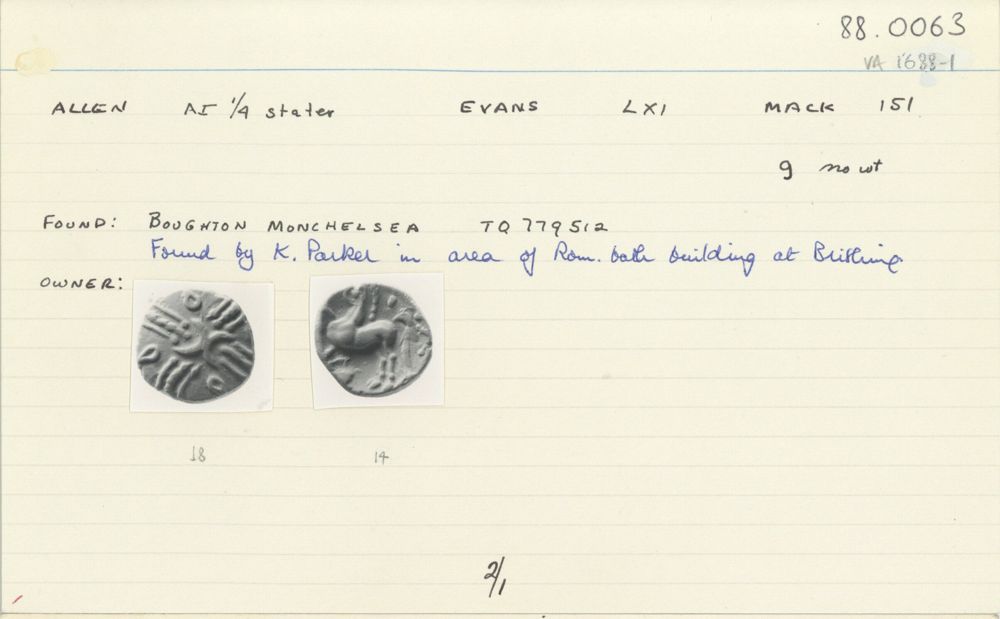 88.0063
VA 1688-1
ALLEN AI 1/4 stater EVANS LXI MACK 151
g no wt
FOUND: BOUGHTON MONCHELSEA TQ 779512
Found by K. Parker in area of Rom. bath building at Brishing
OWNER:
18 14
2/1